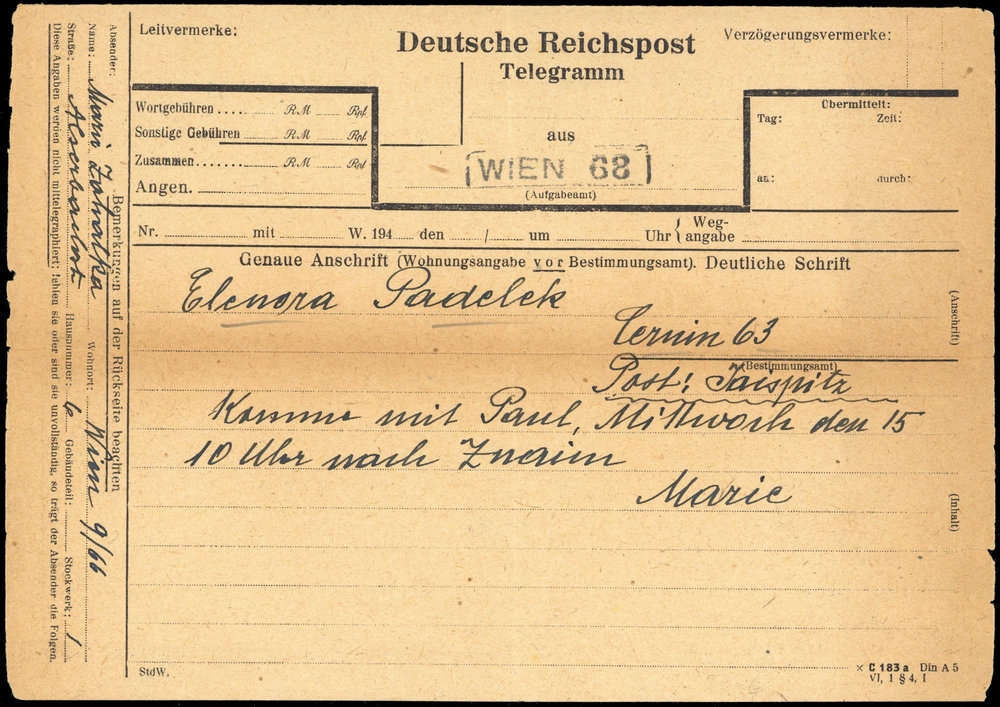 Leitvermerke:
Deutsche Reichspost
Telegramm
Verzögerungsvermerke:
Wortgebühren .... RM Rpf.
Sonstige Gebühren RM Rpf.
Zusammen ....... RM Rpf
Angen.
aus
WIEN 68
(Aufgabeamt)
Übermittelt:
Tag: Zeit:
an: durch:
Nr. mit W. 194 den / um Uhr { Weg-
angabe
Genaue Anschrift (Wohnungsangabe vor Bestimmungsamt). Deutliche Schrift
Elenora Padelek
Cernin 63
(Bestimmungsamt)
Post: Taispitz
Komme mit Paul, Mittwoch den 15
10 Uhr nach Znaim
Marie
(Anschrift)
(Inhalt)
StdW.
× C 183 a Din A 5
VI, 1 § 4, I
Bemerkungen auf der Rückseite beachten
Absender:
Name: Marie Wohnort: Wien 9/66
Straße: Hausnummer: 6 Gebäudeteil: Stockwerk: 1
Diese Angaben werden nicht mittelegraphiert; fehlen sie oder sind sie unvollständig, so trägt der Absender die Folgen.